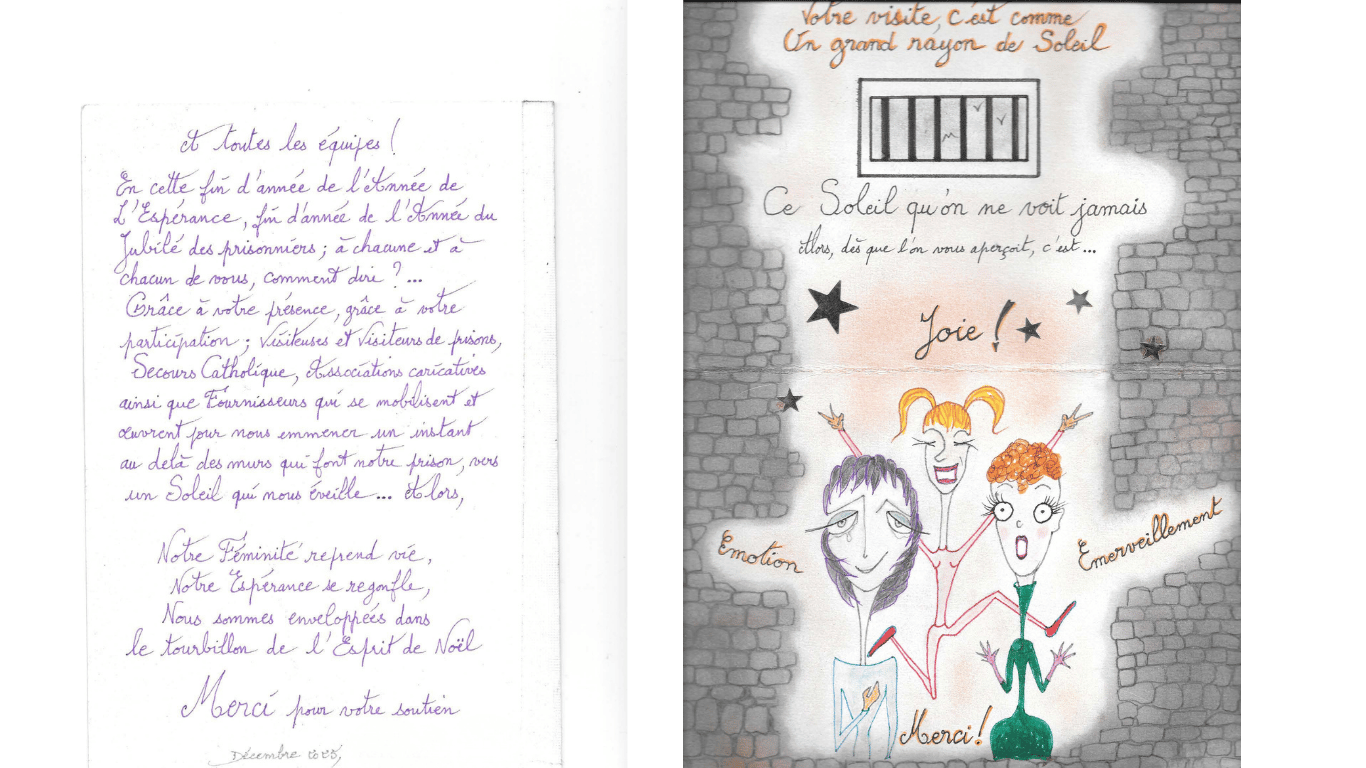 et toutes les équipes !
En cette fin d'année de l'Année de
L'Espérance, fin d'année de l'Année du
Jubilé des prisonniers ; à chacune et à
chacun de vous, comment dire ? ...
Grâce à votre présence, grâce à votre
participation ; Visiteuses et Visiteurs de prisons,
Secours Catholique, Associations caricatives
ainsi que Fournisseurs qui se mobilisent et
œuvrent pour nous emmener un instant
au delà des murs qui font notre prison, vers
un Soleil qui nous éveille ... Alors,
Notre Féminité reprend vie,
Notre Espérance se regonfle,
Nous sommes enveloppées dans
le tourbillon de l'Esprit de Noël
Merci pour votre soutien
Décembre 2025,
Votre visite, c'est comme
Un grand rayon de Soleil
Ce Soleil qu'on ne voit jamais
Alors, dès que l'on vous aperçoit, c'est ...
Joie !
Emotion
Emerveillement
Merci !